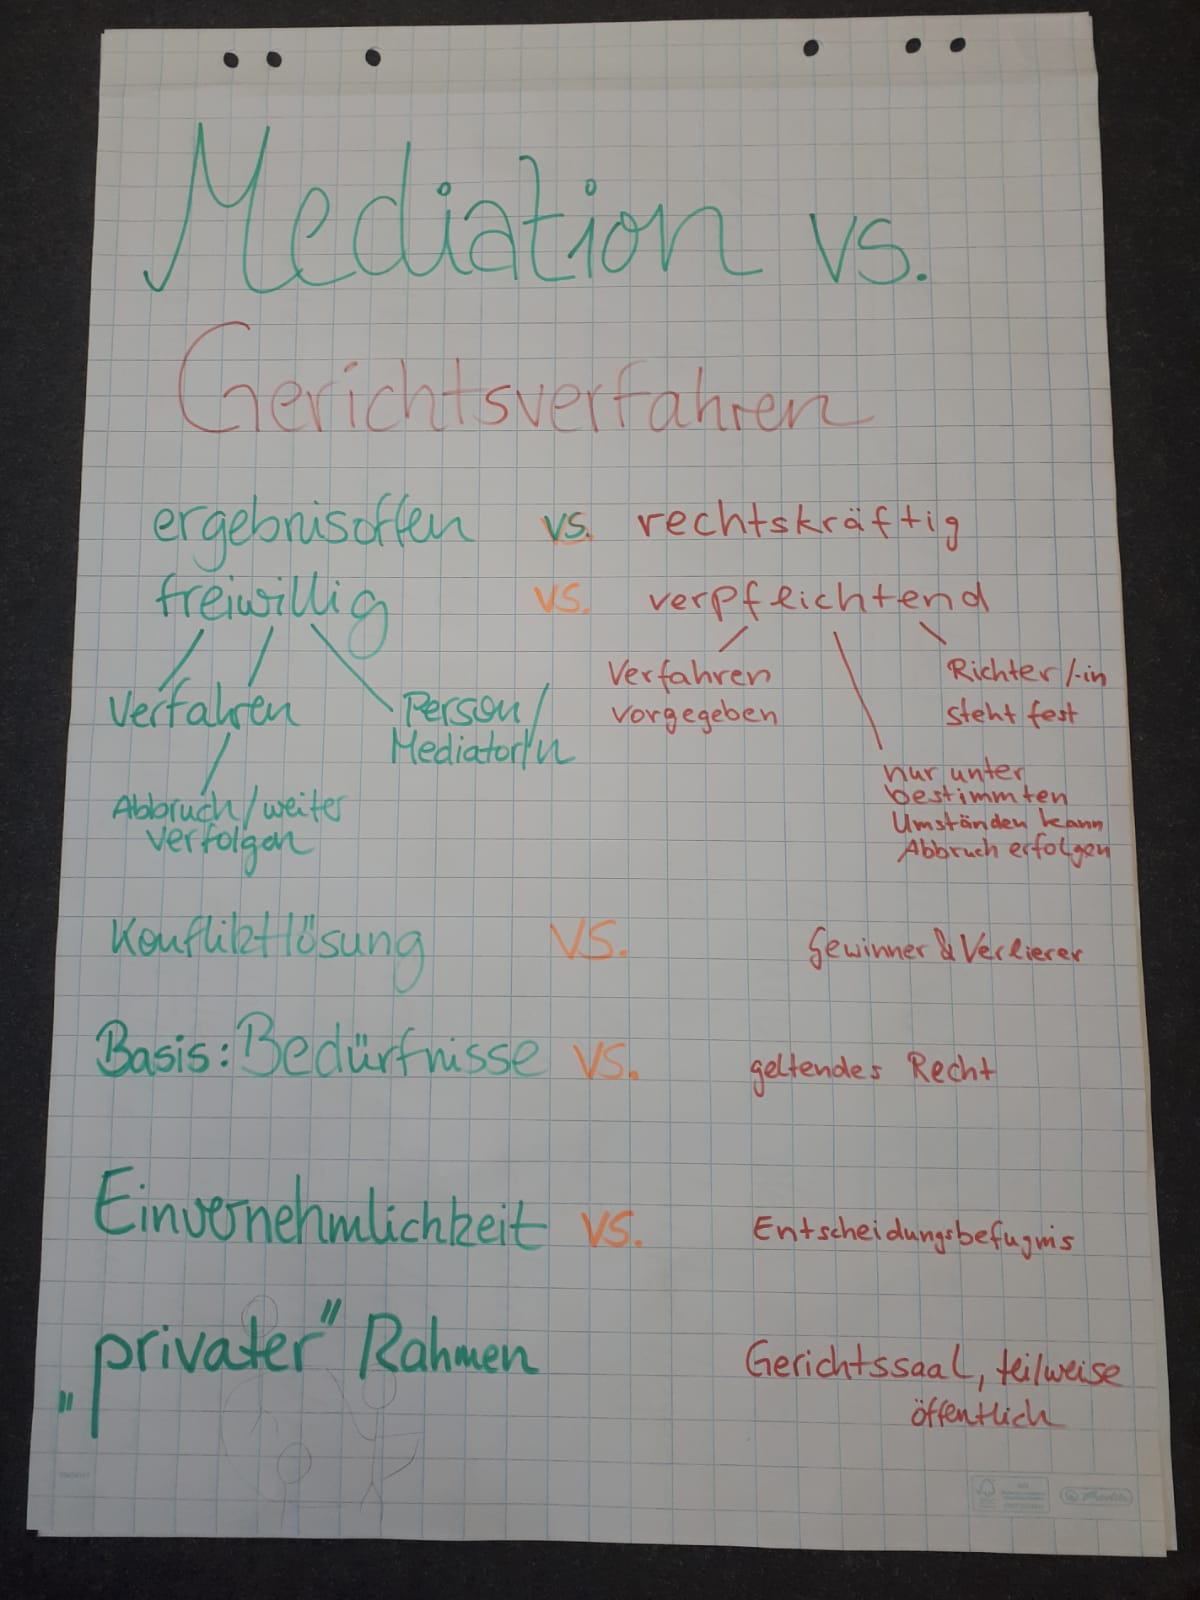 Mediation vs.
Gerichtsverfahren
ergebnisoffen vs. rechtskräftig
freiwillig vs. verpflichtend
Verfahren
Person/
Mediator/'n
Abbruch/weiter
verfolgen
Verfahren
vorgegeben
Richter/-in
steht fest
nur unter
bestimmten
Umständen kann
Abbruch erfolgen
Konfliktlösung vs. Gewinner & Verlierer
Basis: Bedürfnisse vs. geltendes Recht
Einvernehmlichkeit vs. Entscheidungsbefugnis
„privater" Rahmen Gerichtssaal, teilweise
öffentlich